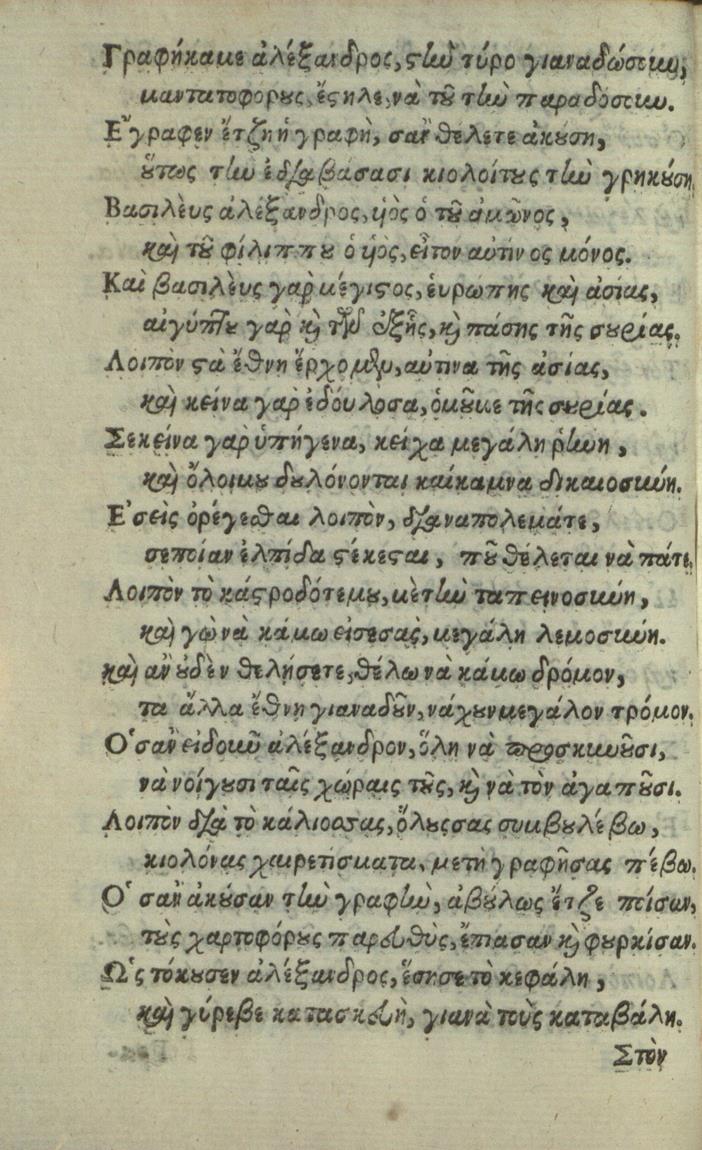 Γραφήκαμε ἀλέξανδρος, στὴν τύρο γιαναδώσειν,
μαντατοφόρους, ἔστηλε, νὰ τοῦ τὴν παραδόσειν.
Ε῎γραφεν ἔτζη ἡ γραφὴ, σὰν θέλετε ἀκούση,
ὅπως τὴν ἐδιαβάσασι κιολοίτους τὴν γρηκούση
Βασιλὲυς ἀλέξανδρος, ὑιὸς ὁ τοῦ ἀμῶνος,
καὶ τοῦ φίλιππου ὁ ὑιὸς, εἶτον αὐτίνος μόνος.
Καὶ βασιλὲυς γαρ μέγιστος, ἐυρώπης καὶ ἀσίας,
αἰγύπτου γαρ καὶ τῶν ἐξῆς, καὶ πάσης τῆς συρίας.
Λοιπὸν στὰ ἔθνη ἔρχομεν, αὐτινα τῆς ἀσίας,
καὶ κείνα γαρ ἐδούλοσα, ὁμοῦμε τῆς συρίας.
Σεκείνα γαρ ὑπήγενα, κείχα μεγάλη ρώμη,
καὶ ὅλοιμου δουλόνονται καίκαμνα δικαιοσύνη.
Ε᾽σεὶς ὀρέγεσθαι λοιπὸν, διαναπολεμάτε,
σεποίαν ἐλπίδα στέκεσται, ποῦ θέλεται νὰ πάτε.
Λοιπὸν τὸ κάστροδότεμου, μὲ τὴν ταπεινοσύνη,
καὶ γὼ νὰ κάμω εἰσεσας, μεγάλη λεμοσύνη.
καὶ αν οὐδὲν θελήσετε, θέλω νὰ κάμω δρόμον,
τα ἄλλα ἔθνη γιαναδοῦν, νάχουν μεγάλον τρόμον.
Ο῾σὰν εἰδοκοῦ ἀλέξανδρον, ὅλη νὰ προσκυνοῦσι,
νὰ νοίγουσι ταῖς χώραις τοῦς, καὶ νὰ τὸν ἀγαποῦσι.
Λοιπὸν διὰ τὸ κάλιοσας, ὅλουςσας συμβουλέβω,
κιολόνας χαιρετίσματα, μετὴ γραφῆσας πέβω.
Ο῾ σὰν ἀκούσαν τὴν γραφὴν, ἀβούλως ἔτζε ποίσαν,
τοὺς χαρτοφόρους παρευθὺς, ἔπιασαν καὶ φουρκίσαν.
Ω῾ς τόκουσεν ἀλέξανδρος, ἔσησε τὸ κεφάλη,
καὶ γύρεβε κατασκευὴ, γιανὰ τοὺς καταβάλη.
Στὸν